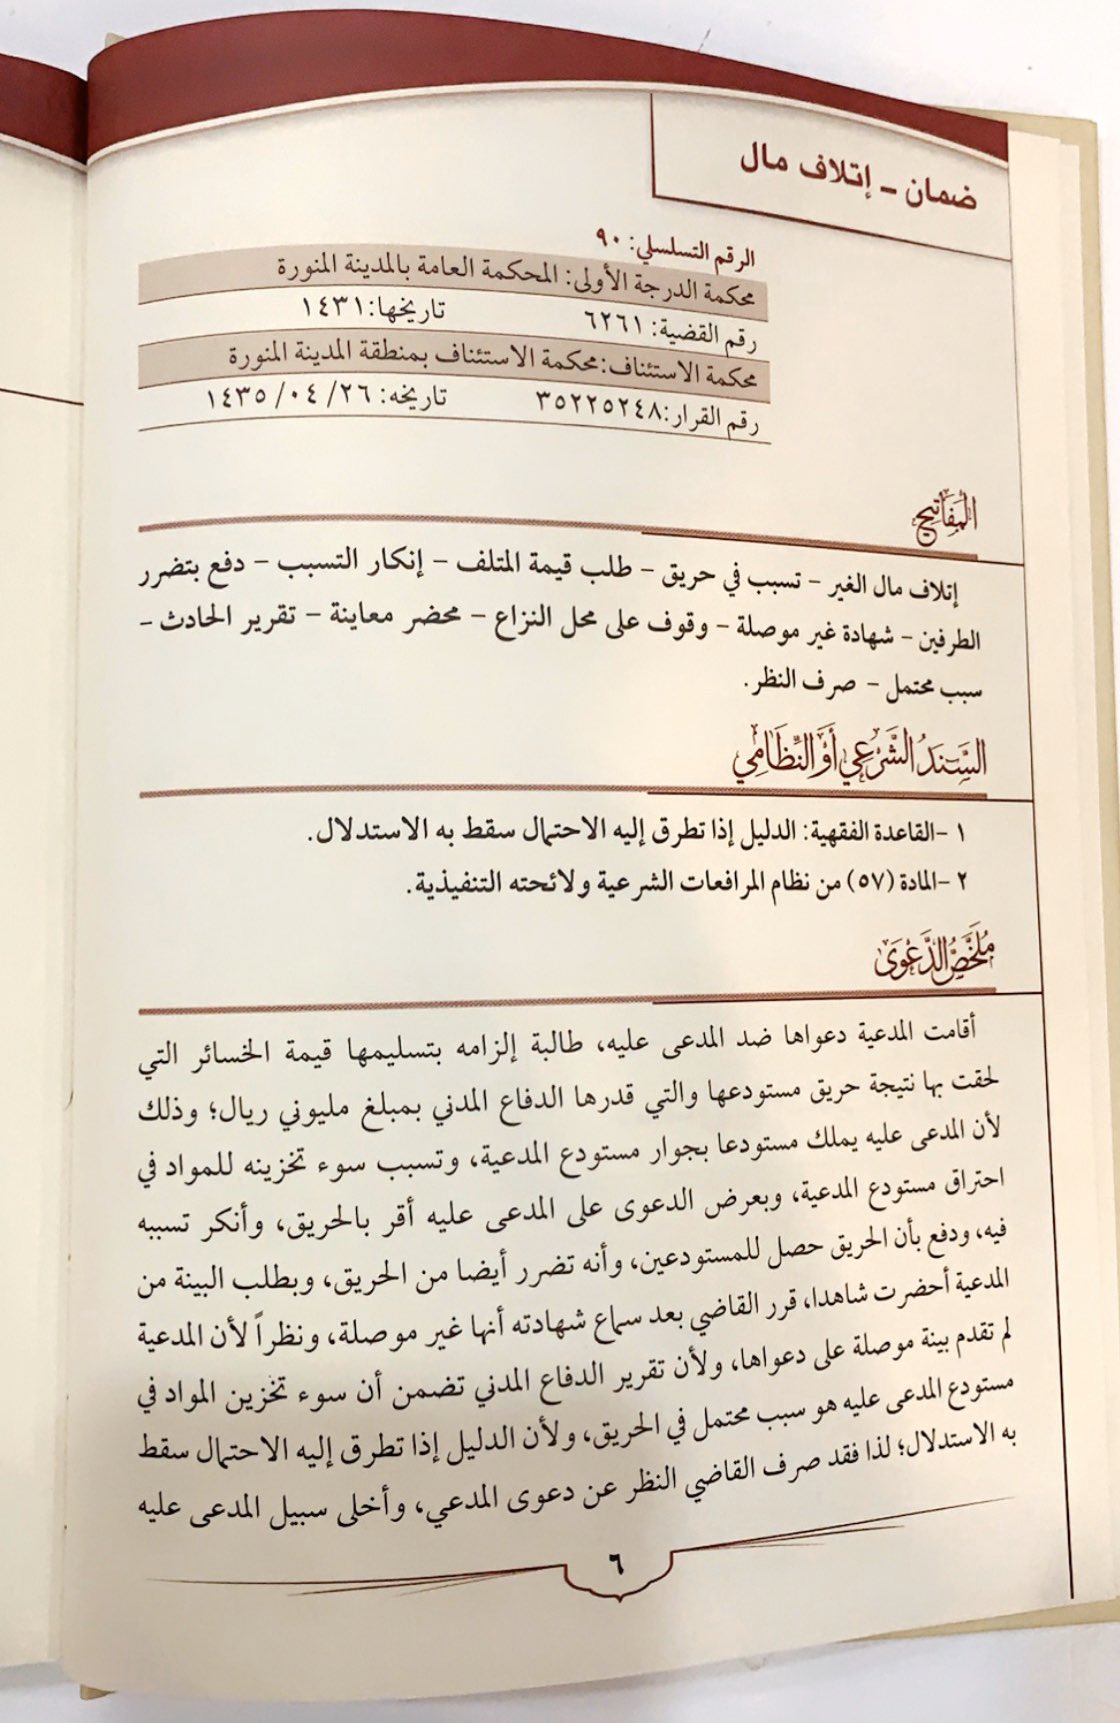 ضمان - إتلاف مال
الرقم التسلسلي: ٩٠
محكمة الدرجة الأولى: المحكمة العامة بالمدينة المنورة
رقم القضية: ٦٢٦١ تاريخها: ١٤٣١
محكمة الاستئناف: محكمة الاستئناف بمنطقة المدينة المنورة
رقم القرار: ٣٥٢٢٥٢٤٨ تاريخه: ٢٦/ ٠٤/ ١٤٣٥
المَفَاتِيحُ
إتلاف مال الغير - تسبب في حريق - طلب قيمة المتلف - إنكار التسبب - دفع بتضرر
الطرفين - شهادة غير موصلة - وقوف على محل النزاع - محضر معاينة - تقرير الحادث -
سبب محتمل - صرف النظر.
السَّنَدُ الشَّرْعِي أَوِ النِّظَامِي
١ -القاعدة الفقهية: الدليل إذا تطرق إليه الاحتمال سقط به الاستدلال.
٢ -المادة (٥٧) من نظام المرافعات الشرعية ولائحته التنفيذية.
مُلَخَّصُ الدَّعْوَى
أقامت المدعية دعواها ضد المدعى عليه، طالبة إلزامه بتسليمها قيمة الخسائر التي
لحقت بها نتيجة حريق مستودعها والتي قدرها الدفاع المدني بمبلغ مليوني ريال؛ وذلك
لأن المدعى عليه يملك مستودعا بجوار مستودع المدعية، وتسبب سوء تخزينه للمواد في
احتراق مستودع المدعية، وبعرض الدعوى على المدعى عليه أقر بالحريق، وأنكر تسببه
فيه، ودفع بأن الحريق حصل للمستودعين، وأنه تضرر أيضا من الحريق، وبطلب البينة من
المدعية أحضرت شاهدا، قرر القاضي بعد سماع شهادته أنها غير موصلة، ونظراً لأن المدعية
لم تقدم بينة موصلة على دعواها، ولأن تقرير الدفاع المدني تضمن أن سوء تخزين المواد في
مستودع المدعى عليه هو سبب محتمل في الحريق، ولأن الدليل إذا تطرق إليه الاحتمال سقط
به الاستدلال؛ لذا فقد صرف القاضي النظر عن دعوى المدعي، وأخلى سبيل المدعى عليه
٦